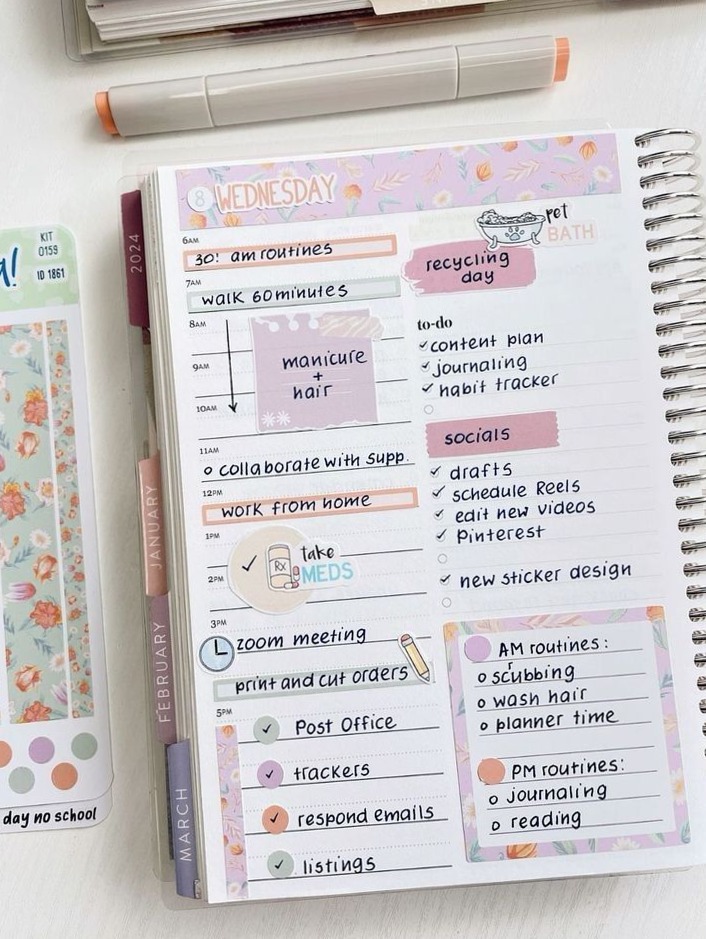 KIT
0159
ID 1861
day no school
2024
JANUARY
FEBRUARY
MARCH
8 WEDNESDAY
6AM
30! am routines
7AM
walk 60 minutes
8AM
9AM
manicure
+
hair
10AM
11AM
collaborate with supp.
12PM
work from home
1PM
2PM
Rx
take
MEDS
3PM
zoom meeting
print and cut orders
5PM
Post Office
trackers
respond emails
listings
pet
BATH
recycling
day
to-do
content plan
journaling
habit tracker
socials
drafts
schedule Reels
edit new videos
Pinterest
new sticker design
AM routines:
scrubbing
wash hair
planner time
PM routines:
journaling
reading